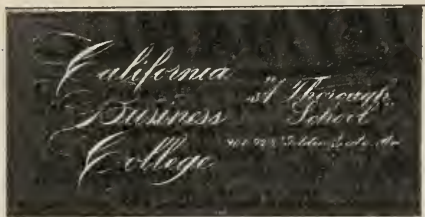 California
Business
College
"A Thorough
School"
Golden Gate Av